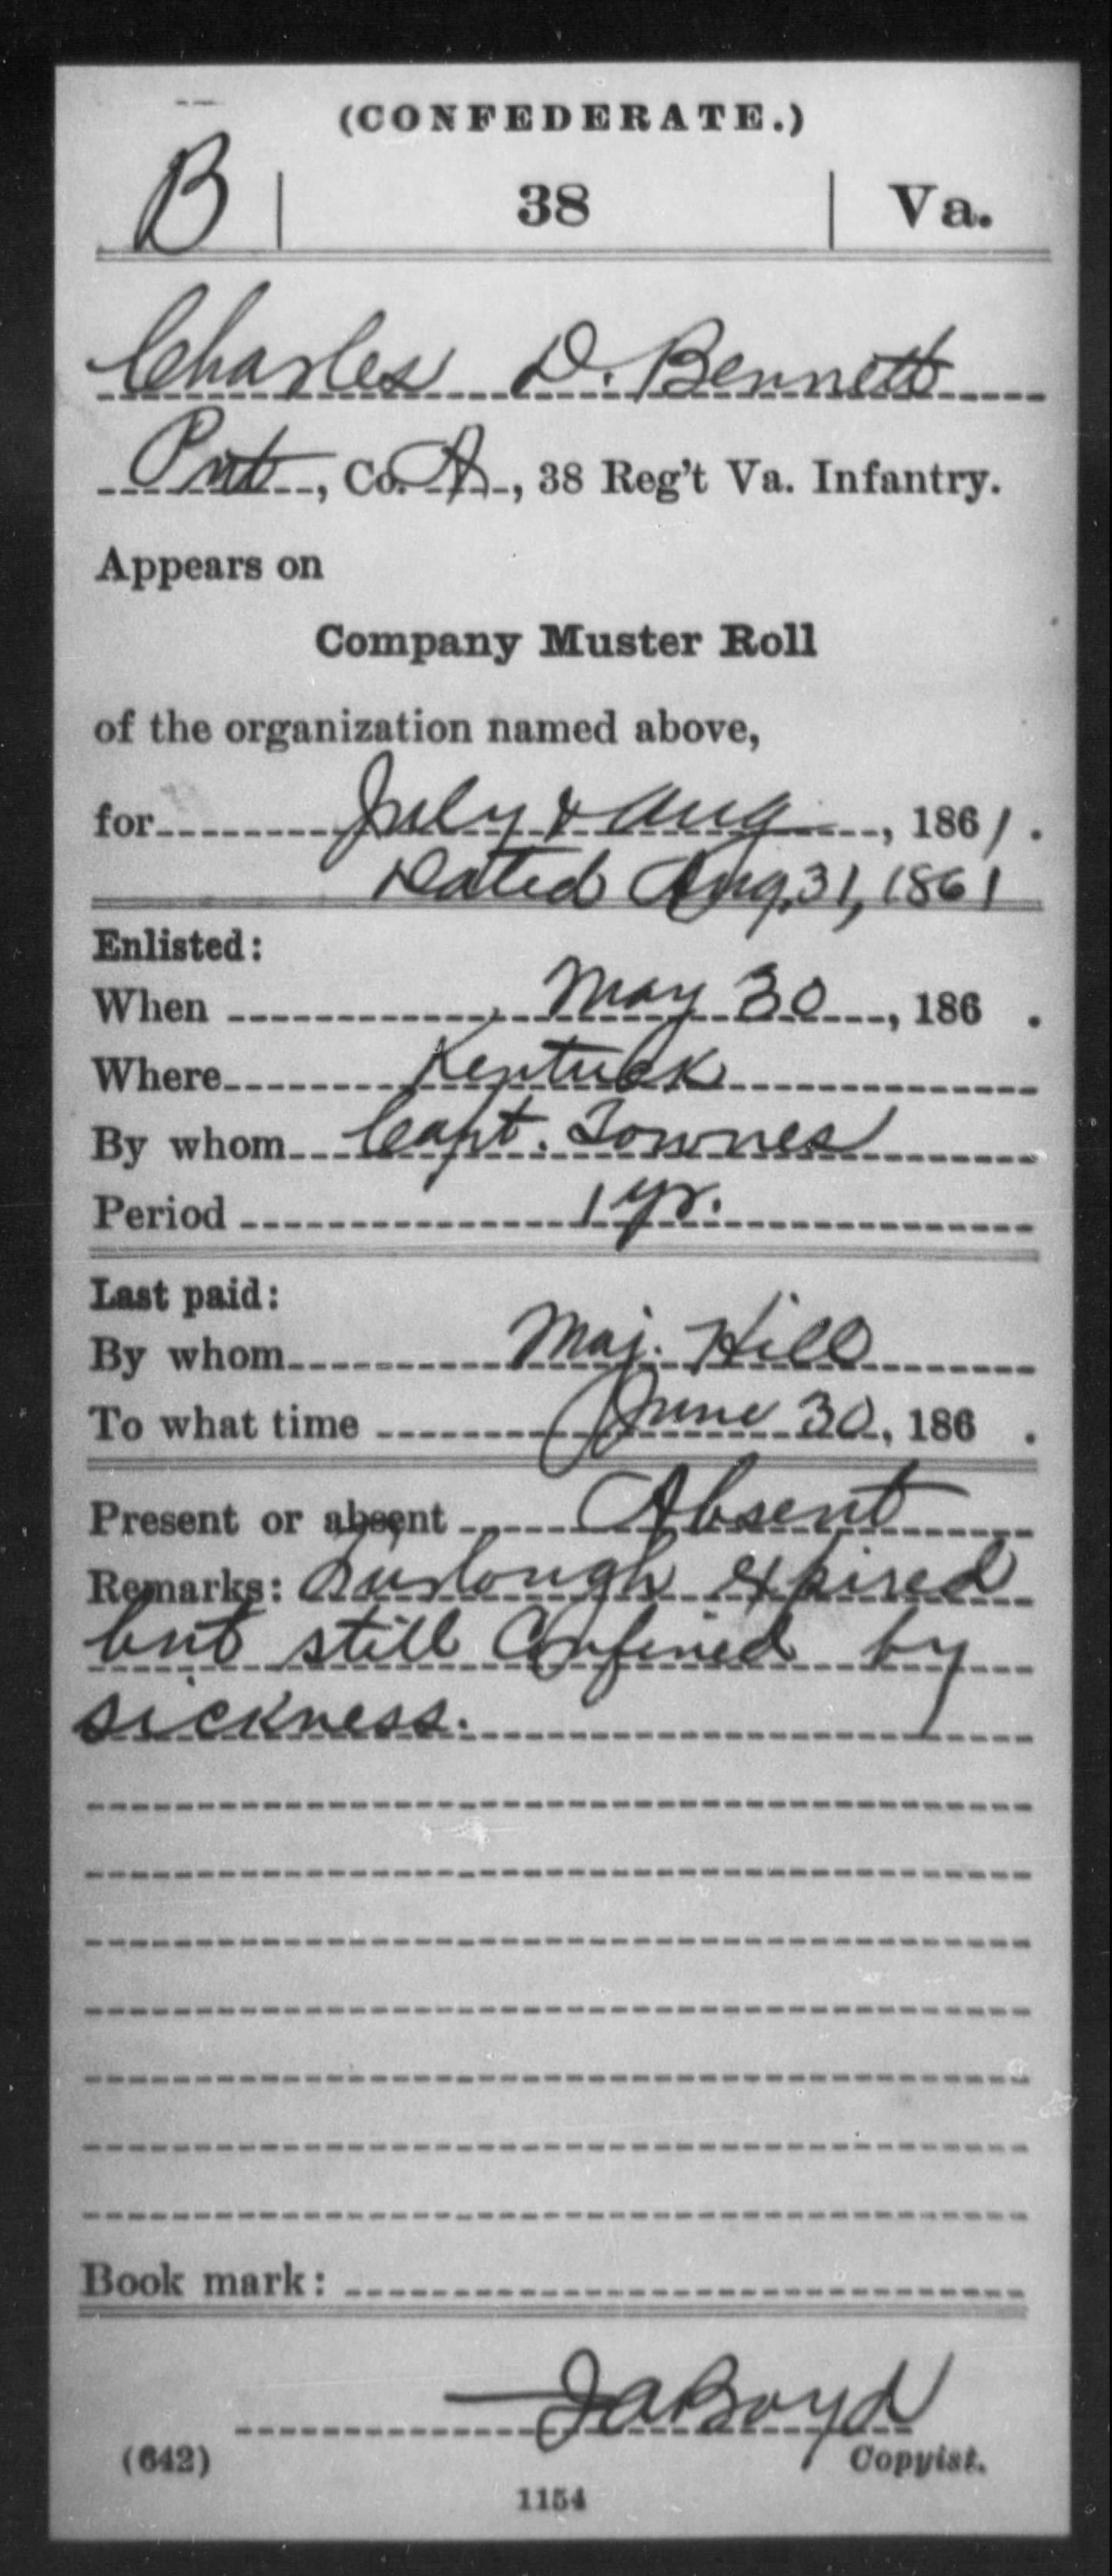 (CONFEDERATE.)
B | 38 | Va.
Charles D. Bennett
Pvt, Co. A, 38 Reg't Va. Infantry.
Appears on
Company Muster Roll
of the organization named above,
for July & Aug, 1861.
Dated Aug. 31, 1861
Enlisted:
When May 30, 186 .
Where Kentuck
By whom Capt. Townes
Period 1 yr.
Last paid:
By whom Maj. Hill
To what time June 30, 186 .
Present or absent Absent
Remarks: Furlough expired
but still Confined by
sickness.
Book mark:
J A Boyd
(642) Copyist.
1154